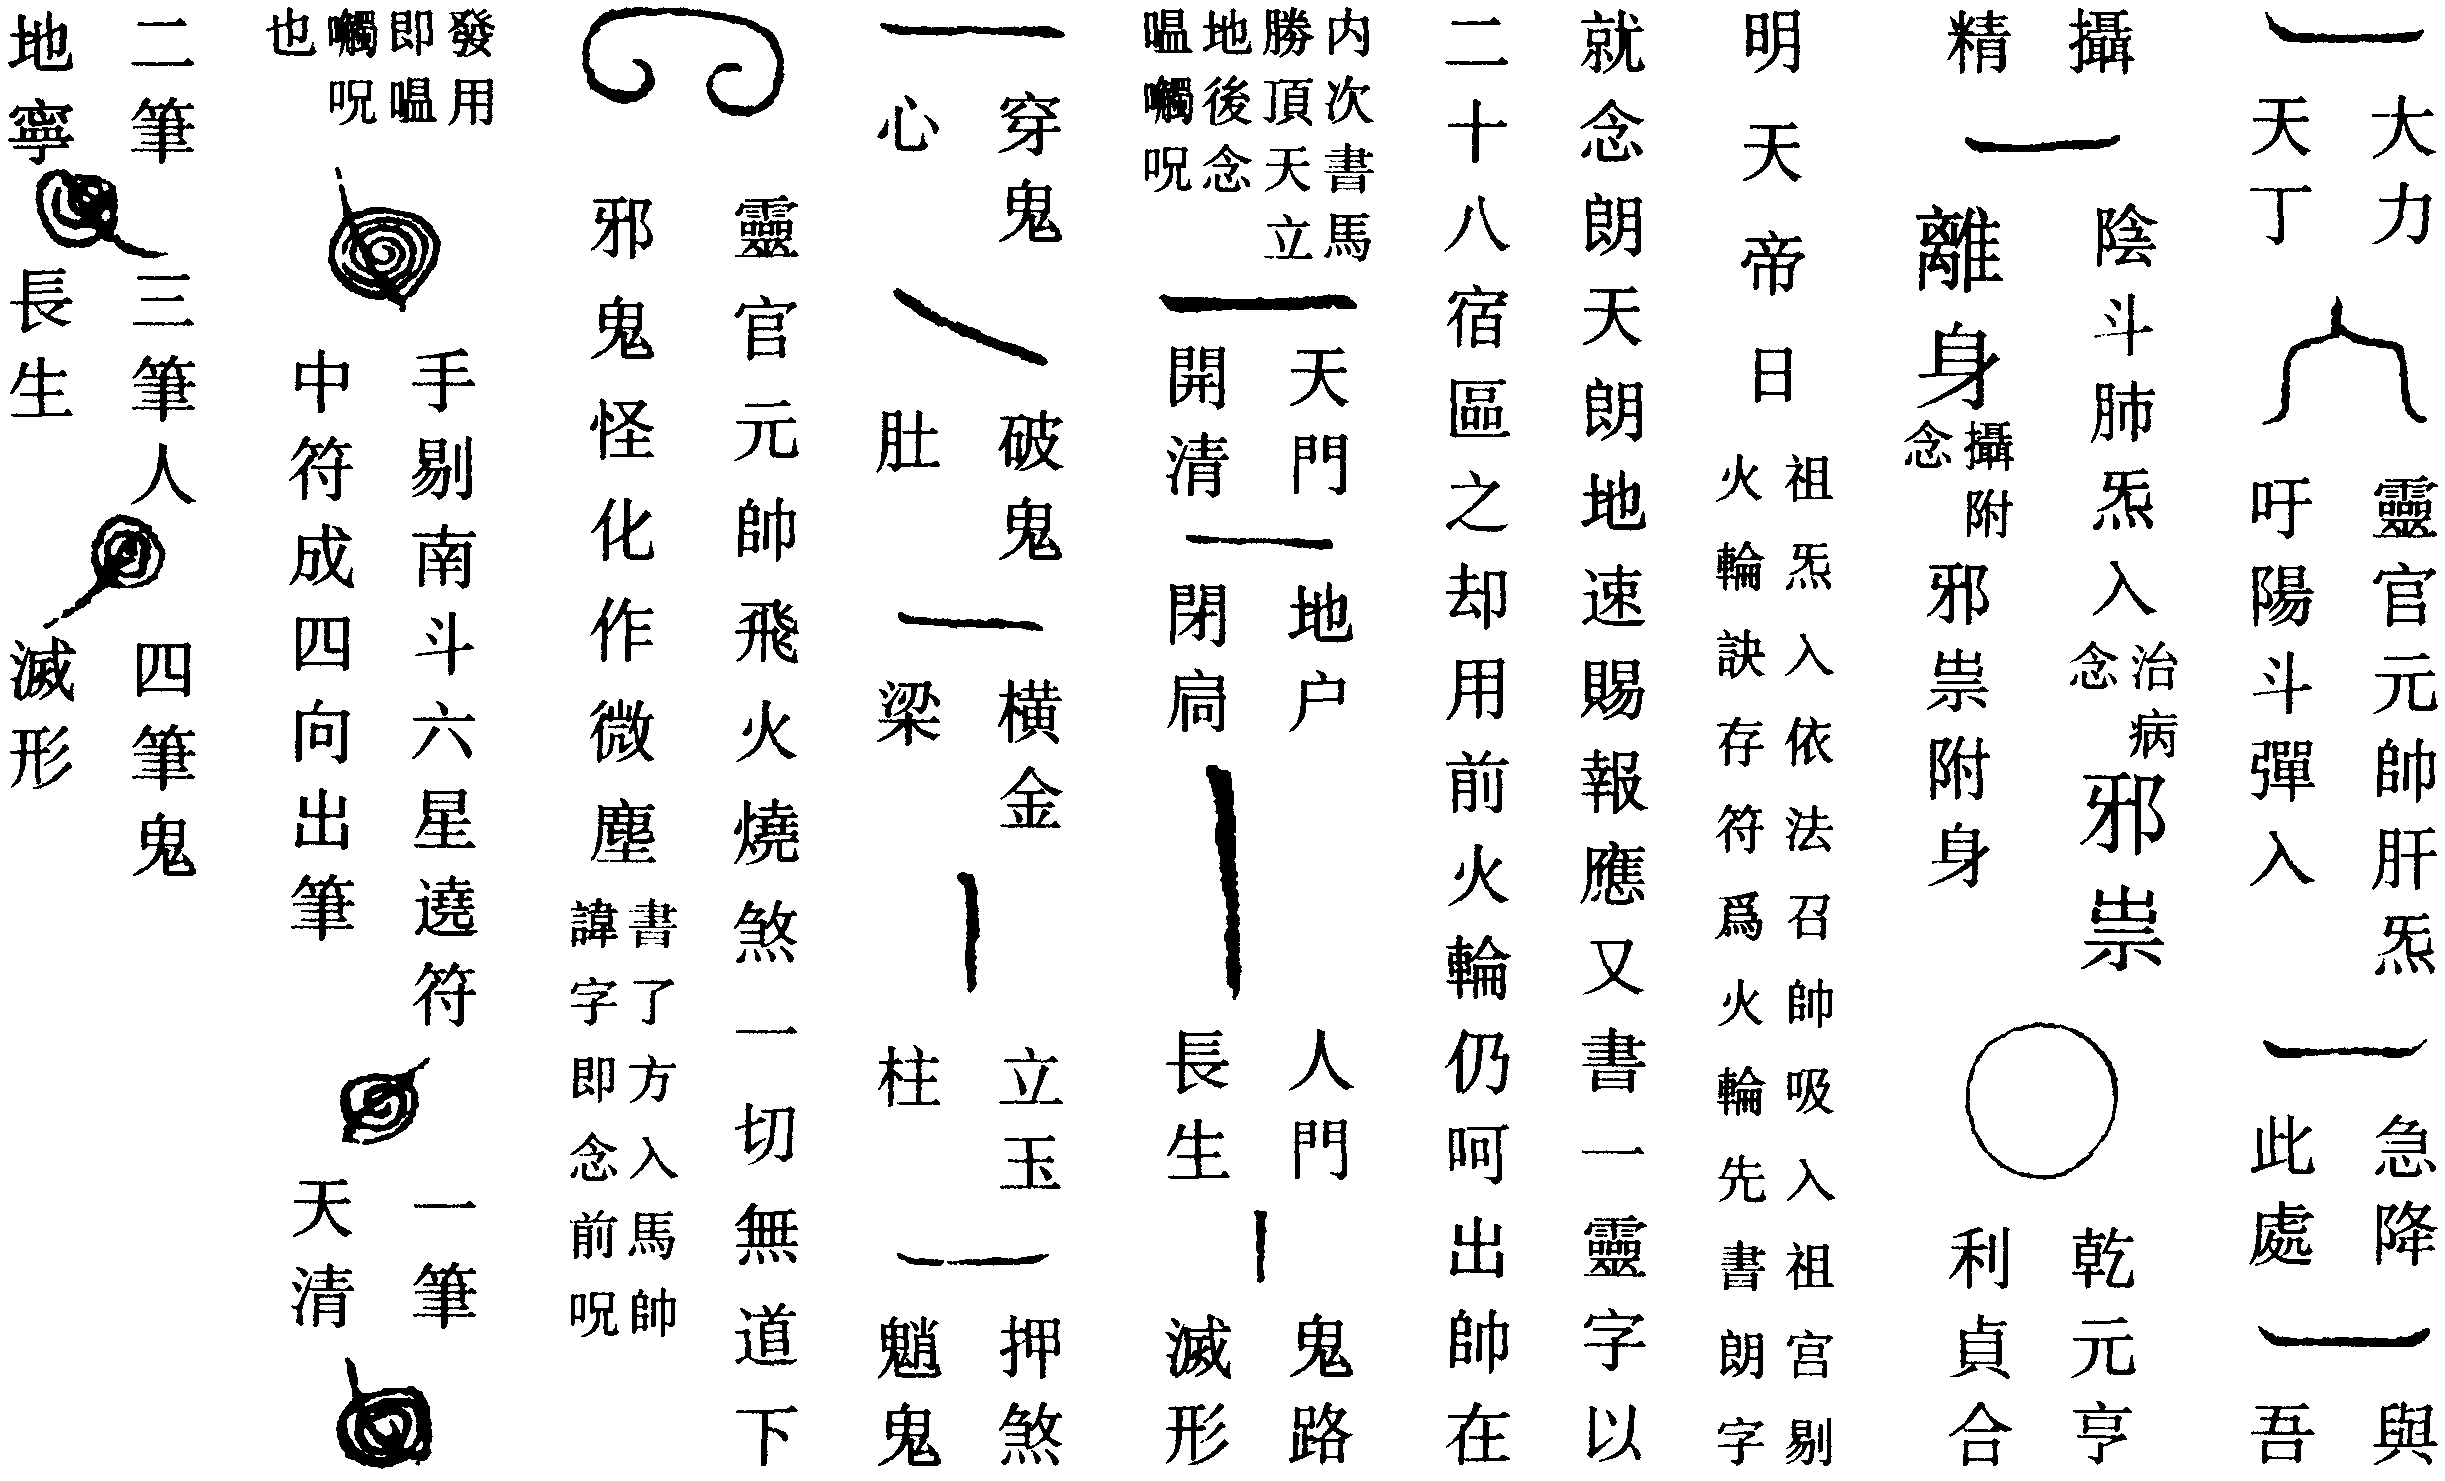 大力天丁
靈官元帥肝炁吁陽斗彈入
急降此處
與吾
攝精
陰斗肺炁入治病念邪祟
離身攝附念邪祟附身
乾元亨利貞合
明天帝日
祖炁入依法召帥吸入祖宫剔
火輪訣存符爲火輪先書朗字
就念朗天朗地速賜報應又書一靈字以
二十八宿區之却用前火輪仍呵出帥在
内次書馬
勝頂天立
地後念
嗢囑呪
天門開清
地户閉扃
人門長生
鬼路滅形
穿鬼心
破鬼肚
横金梁
立玉柱
押煞魈鬼
靈官元帥飛火燒煞一切無道下
邪鬼怪化作微塵
書了方入馬帥
諱字即念前呪
發用
即嗢
囑呪
也
手剔南斗六星遶符
中符成四向出筆
一筆天清
二筆地寧
三筆人長生
四筆鬼滅形